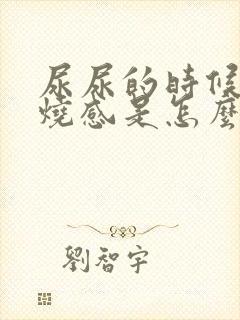 尿尿的時候
燒感是怎麼
劉智宇